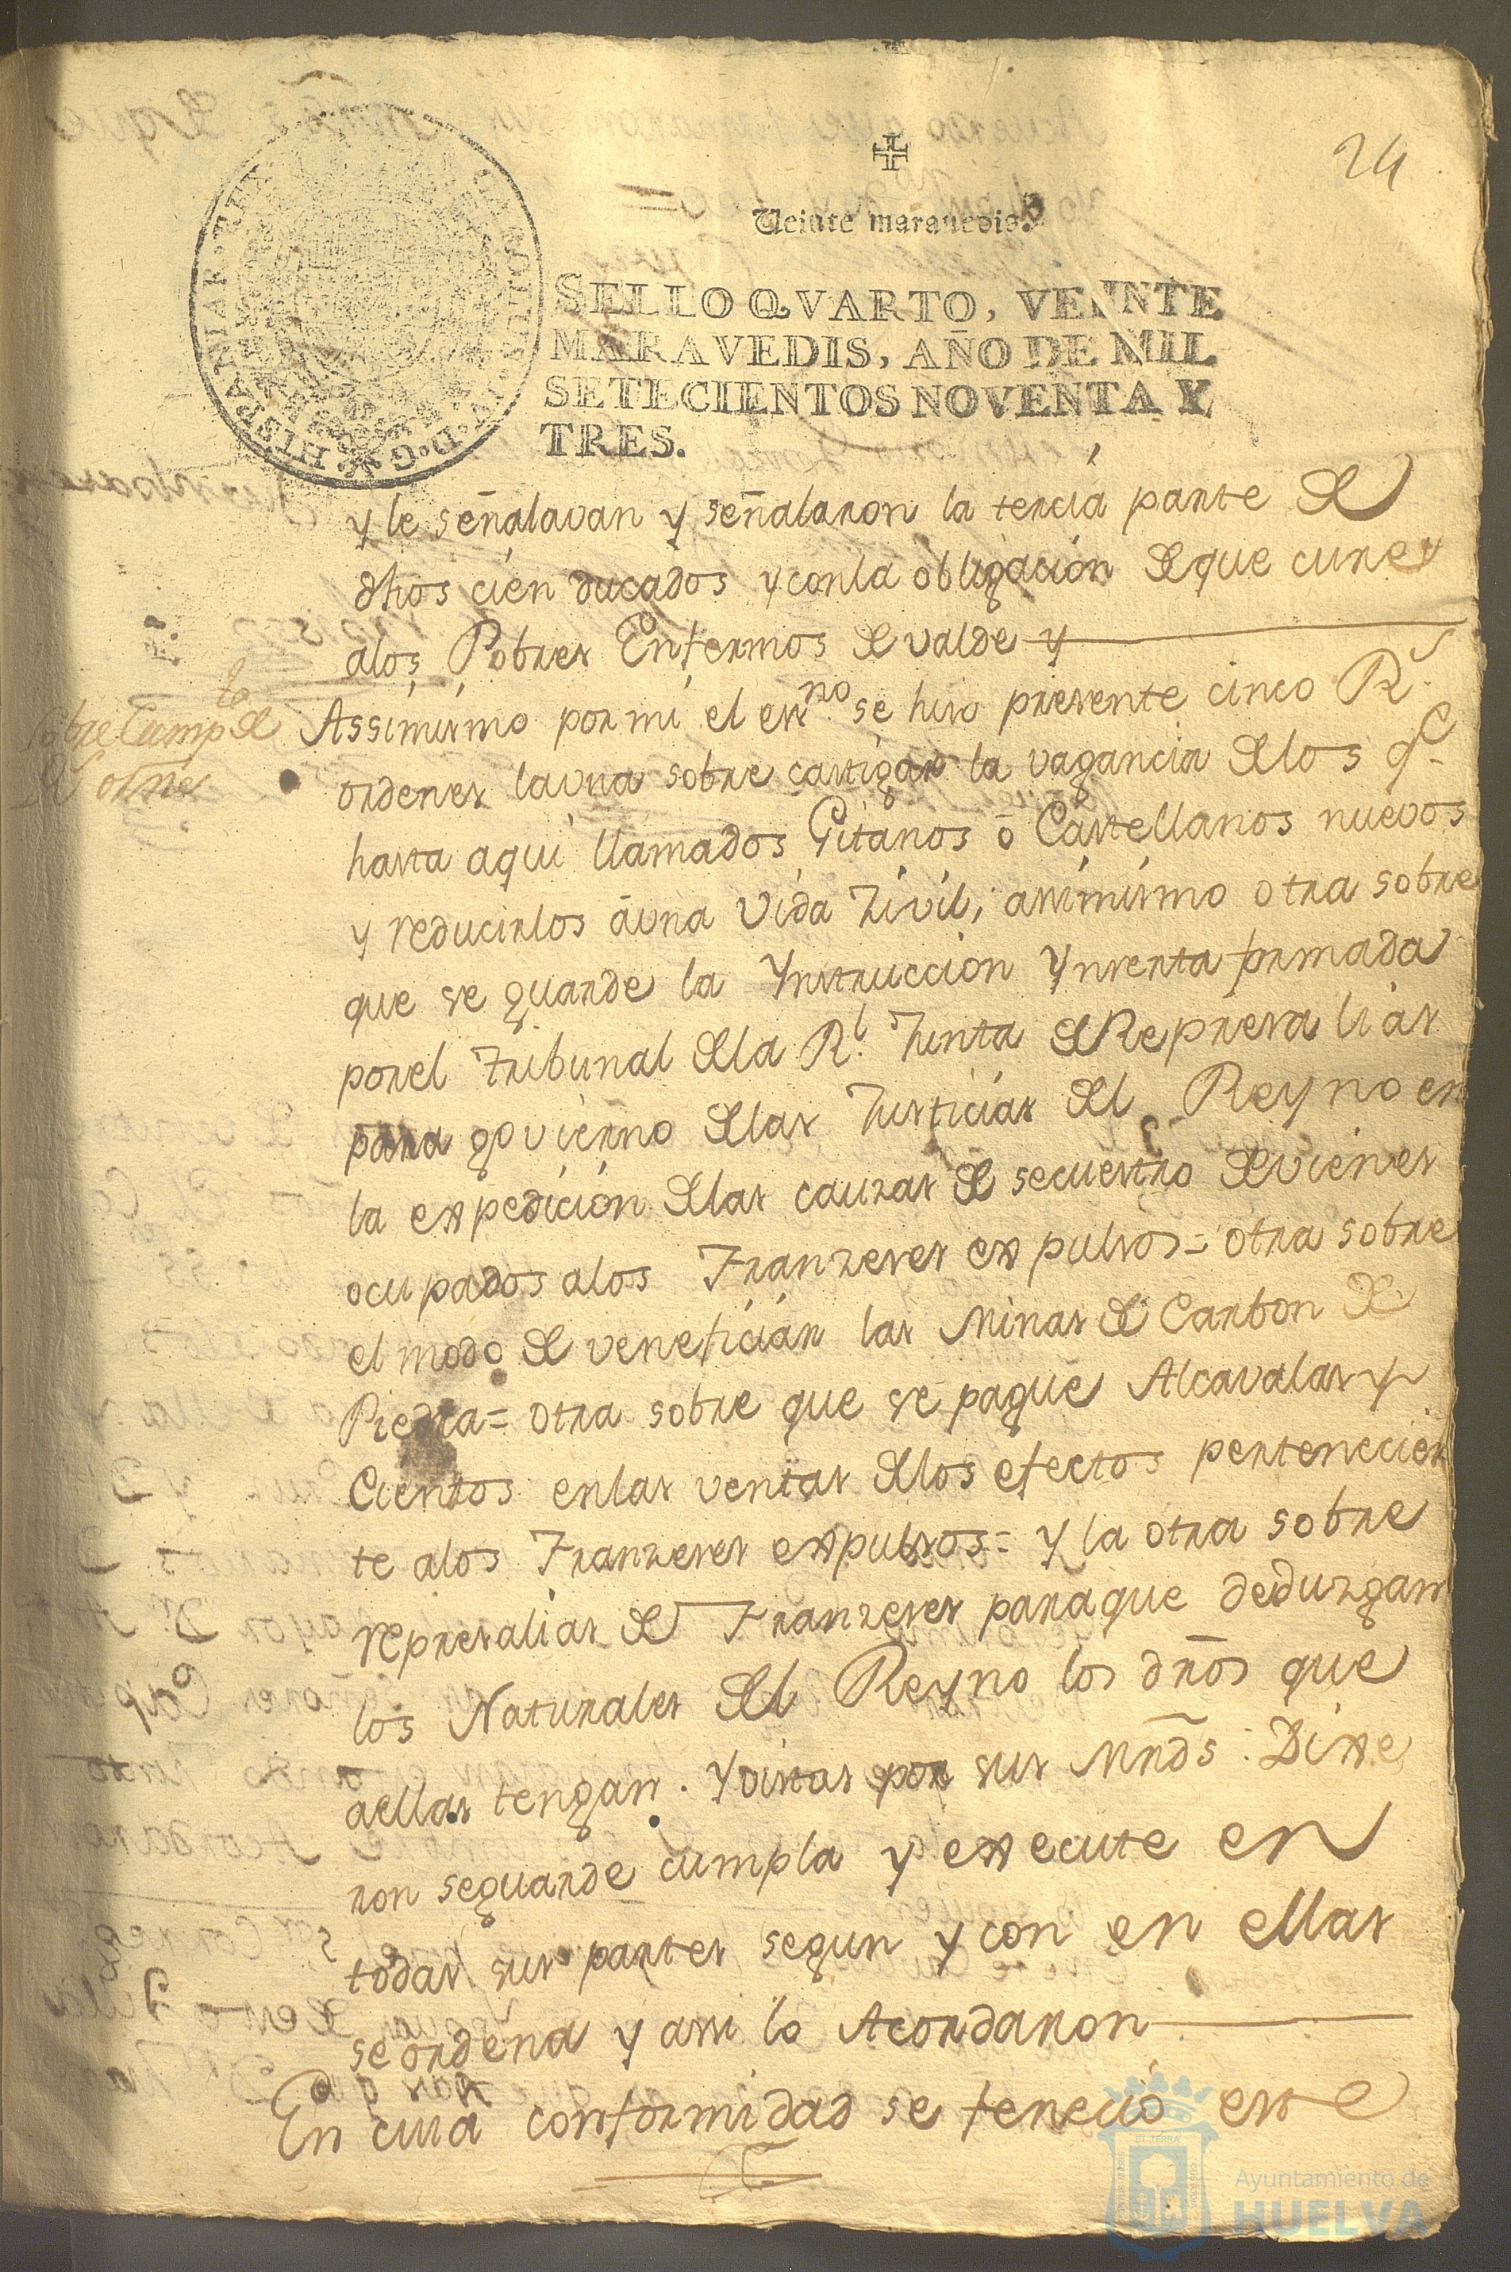 24
Veinte marauedis.
SELLO QVARTO, VEINTE
MARAVEDIS, AÑO DE MIL
SETECIENTOS NOVENTA Y
TRES.
HISPANIAR. REX
CAROLUS. IV. D. G.
y le señalavan y señalaron la tercia parte de
dhos cien ducados y con la obligacion de que cure
alos Pobres Enfermos de valde y
Sobre Cump.to de
Ordnes
Assimismo por mi el essno se hiso presente cinco Rs
ordenes la una sobre castigar la vagancia de los qe
hasta aqui llamados Gitanos ō Castellanos nuevos
y reducirlos āuna Vida Zivil; assimismo otra sobre
que se guarde la Ynstruccion Ynserta firmada
por el Tribunal de la Rl. Junta de Represalias
para govierno de las Justicias del Reyno en
la expedicion de las causas de secuestro de vienes
ocupados alos Franzeses expulsos = otra sobre
el modo de veneficiar las Minas de Carbon de
Piedra = otra sobre que se pague Alcavalas y
Cientos en las ventas de los efectos pertenecien
te alos Franzeses expulsos = y la otra sobre
represalias de Franzeses para que deduzgan
los Naturales del Reyno los dros que
aellas tengan. Y vistas por sus Mrds: Dixe
ron seguarde cumpla y execute en
todas sus partes segun y con en ellas
se ordena y assi lo Acordaron
En cuia conformidad se feneció este
Ayuntamiento de
HUELVA